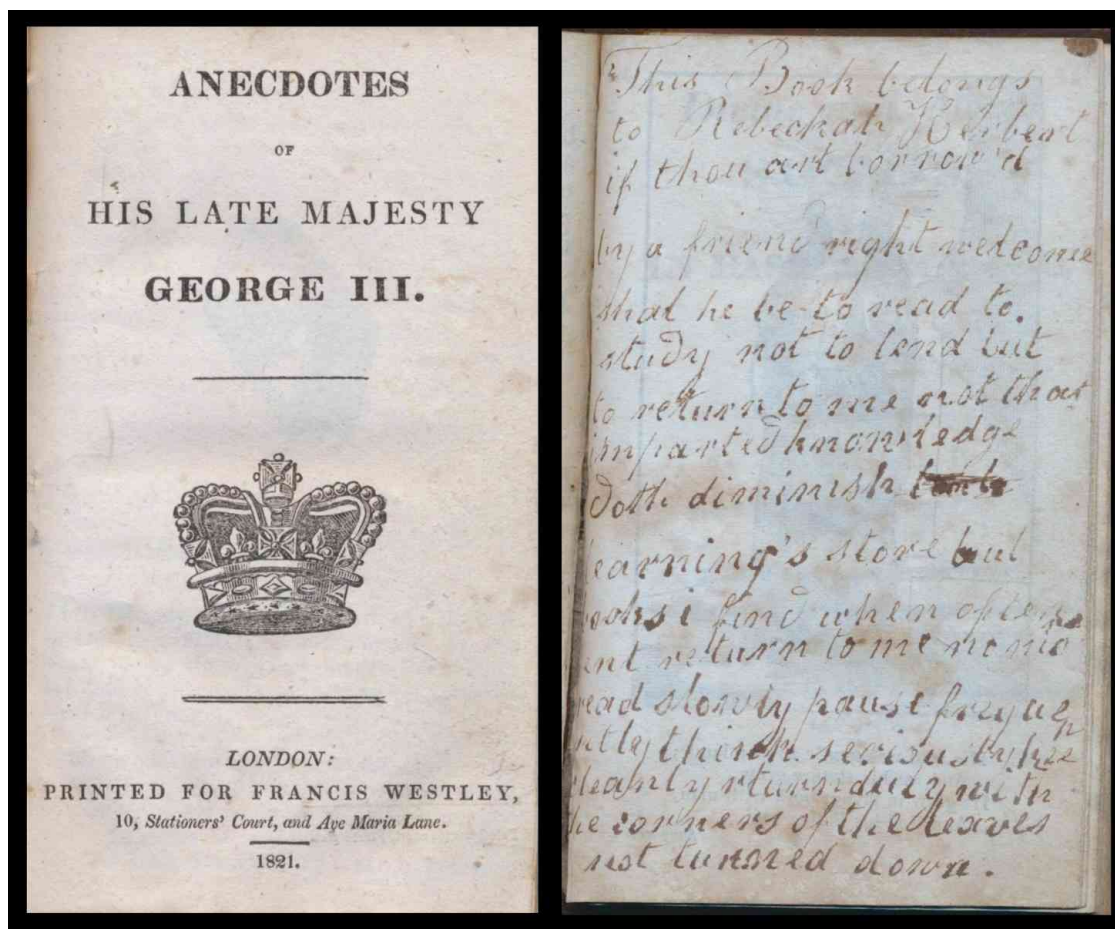 ANECDOTES
OF
HIS LATE MAJESTY
GEORGE III.
LONDON:
PRINTED FOR FRANCIS WESTLEY,
10, Stationers' Court, and Ave Maria Lane.
1821.
This Book belongs
to Rebeckah Herbert
if thou art borrow'd
by a friend right welcome
shal he be to read to.
study not to lend but
to return to me not that
imparted knowledge
doth diminish
learning's store but
books i find when often
ent return to me no mo
read slowly pause freque
ntly think seriously kee
cleanly return duly with
the corners of the leaves
not turned down.